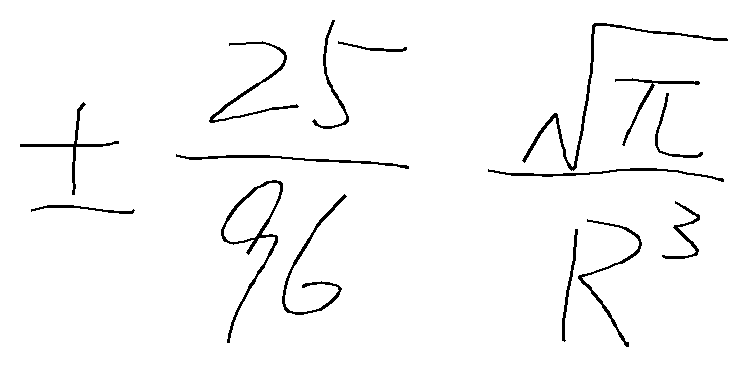 \pm \frac{25}{96} \frac{\sqrt{\pi}}{R^3}